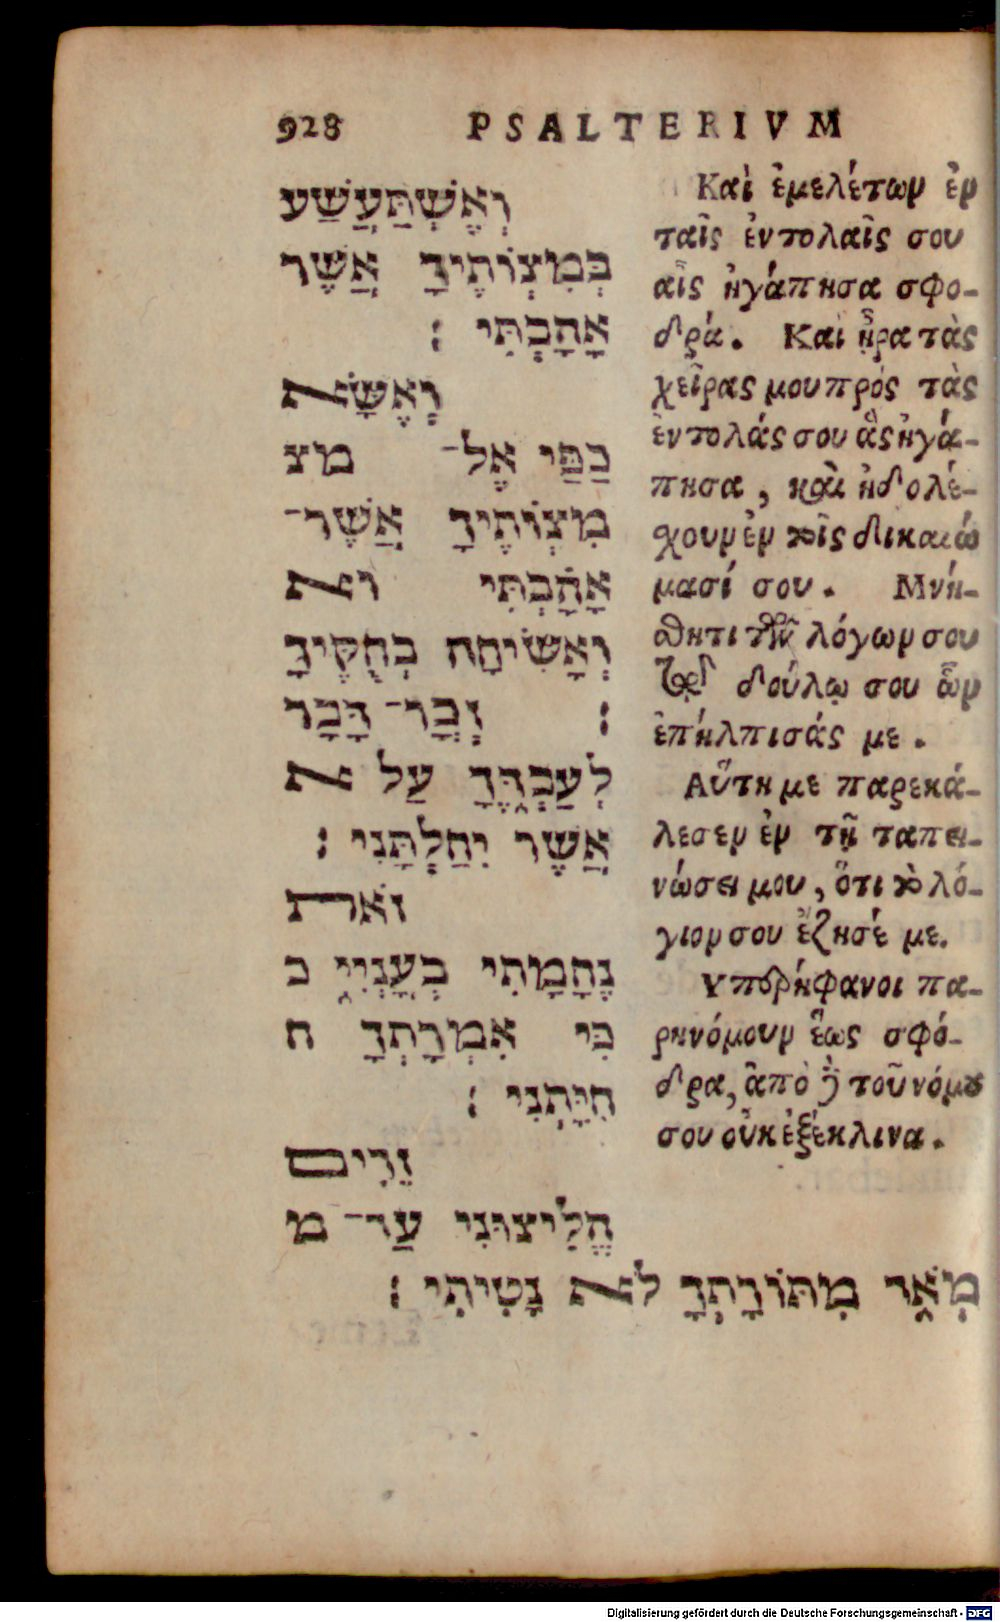 928 PSALTERIVM
וְאֶשְׁתַּעֲשַׁע
בְּמִצְוֹתֶיךָ אֲשֶׁר
אָהָבְתִּי :
וְאֶשָּׂא
כַפַּי אֶל־ מצ
מִצְוֹתֶיךָ אֲשֶׁר־
אָהָבְתִּי וא
וְאָשִׂיחָה בְחֻקֶּיךָ
: זְכָר־ דָּבָר
לְעַבְדֶּךָ עַל א
אֲשֶׁר יִחַלְתָּנִי :
זֹאת
נֶחָמָתִי בְעָנְיִי כ
כִּי אִמְרָתְךָ ח
חִיָּתְנִי :
זֵדִים
הֱלִיצוּנִי עַד־ מ
מְאֹד מִתּוֹרָתְךָ לֹא נָטִיתִי :
Καὶ ἐμελέτων ἐν
ταῖς ἐντολαῖς σου
αἷς ἠγάπησα σφο-
δρά. Καὶ ᾖρα τὰς
χεῖρας μου πρός τὰς
ἐντολάς σου ἃς ἠγά-
πησα, καὶ ἠδολέ-
χουν ἐν τοῖς δικαιώ
μασί σου. Μνή-
θητι τῶν λόγων σου
τῷ δούλῳ σου ὧν
ἐπήλπισάς με.
Αὕτη με παρεκά-
λεσεν ἐν τῇ ταπει-
νώσει μου, ὅτι τὸ λό-
γιον σου ἔζησέ με.
Υπερήφανοι πα-
ρηνόμουν ἕως σφό-
δρα, ἀπὸ δὲ τοῦ νόμου
σου οὐκ ἐξέκλινα.
Digitalisierung gefördert durch die Deutsche Forschungsgemeinschaft - DFG